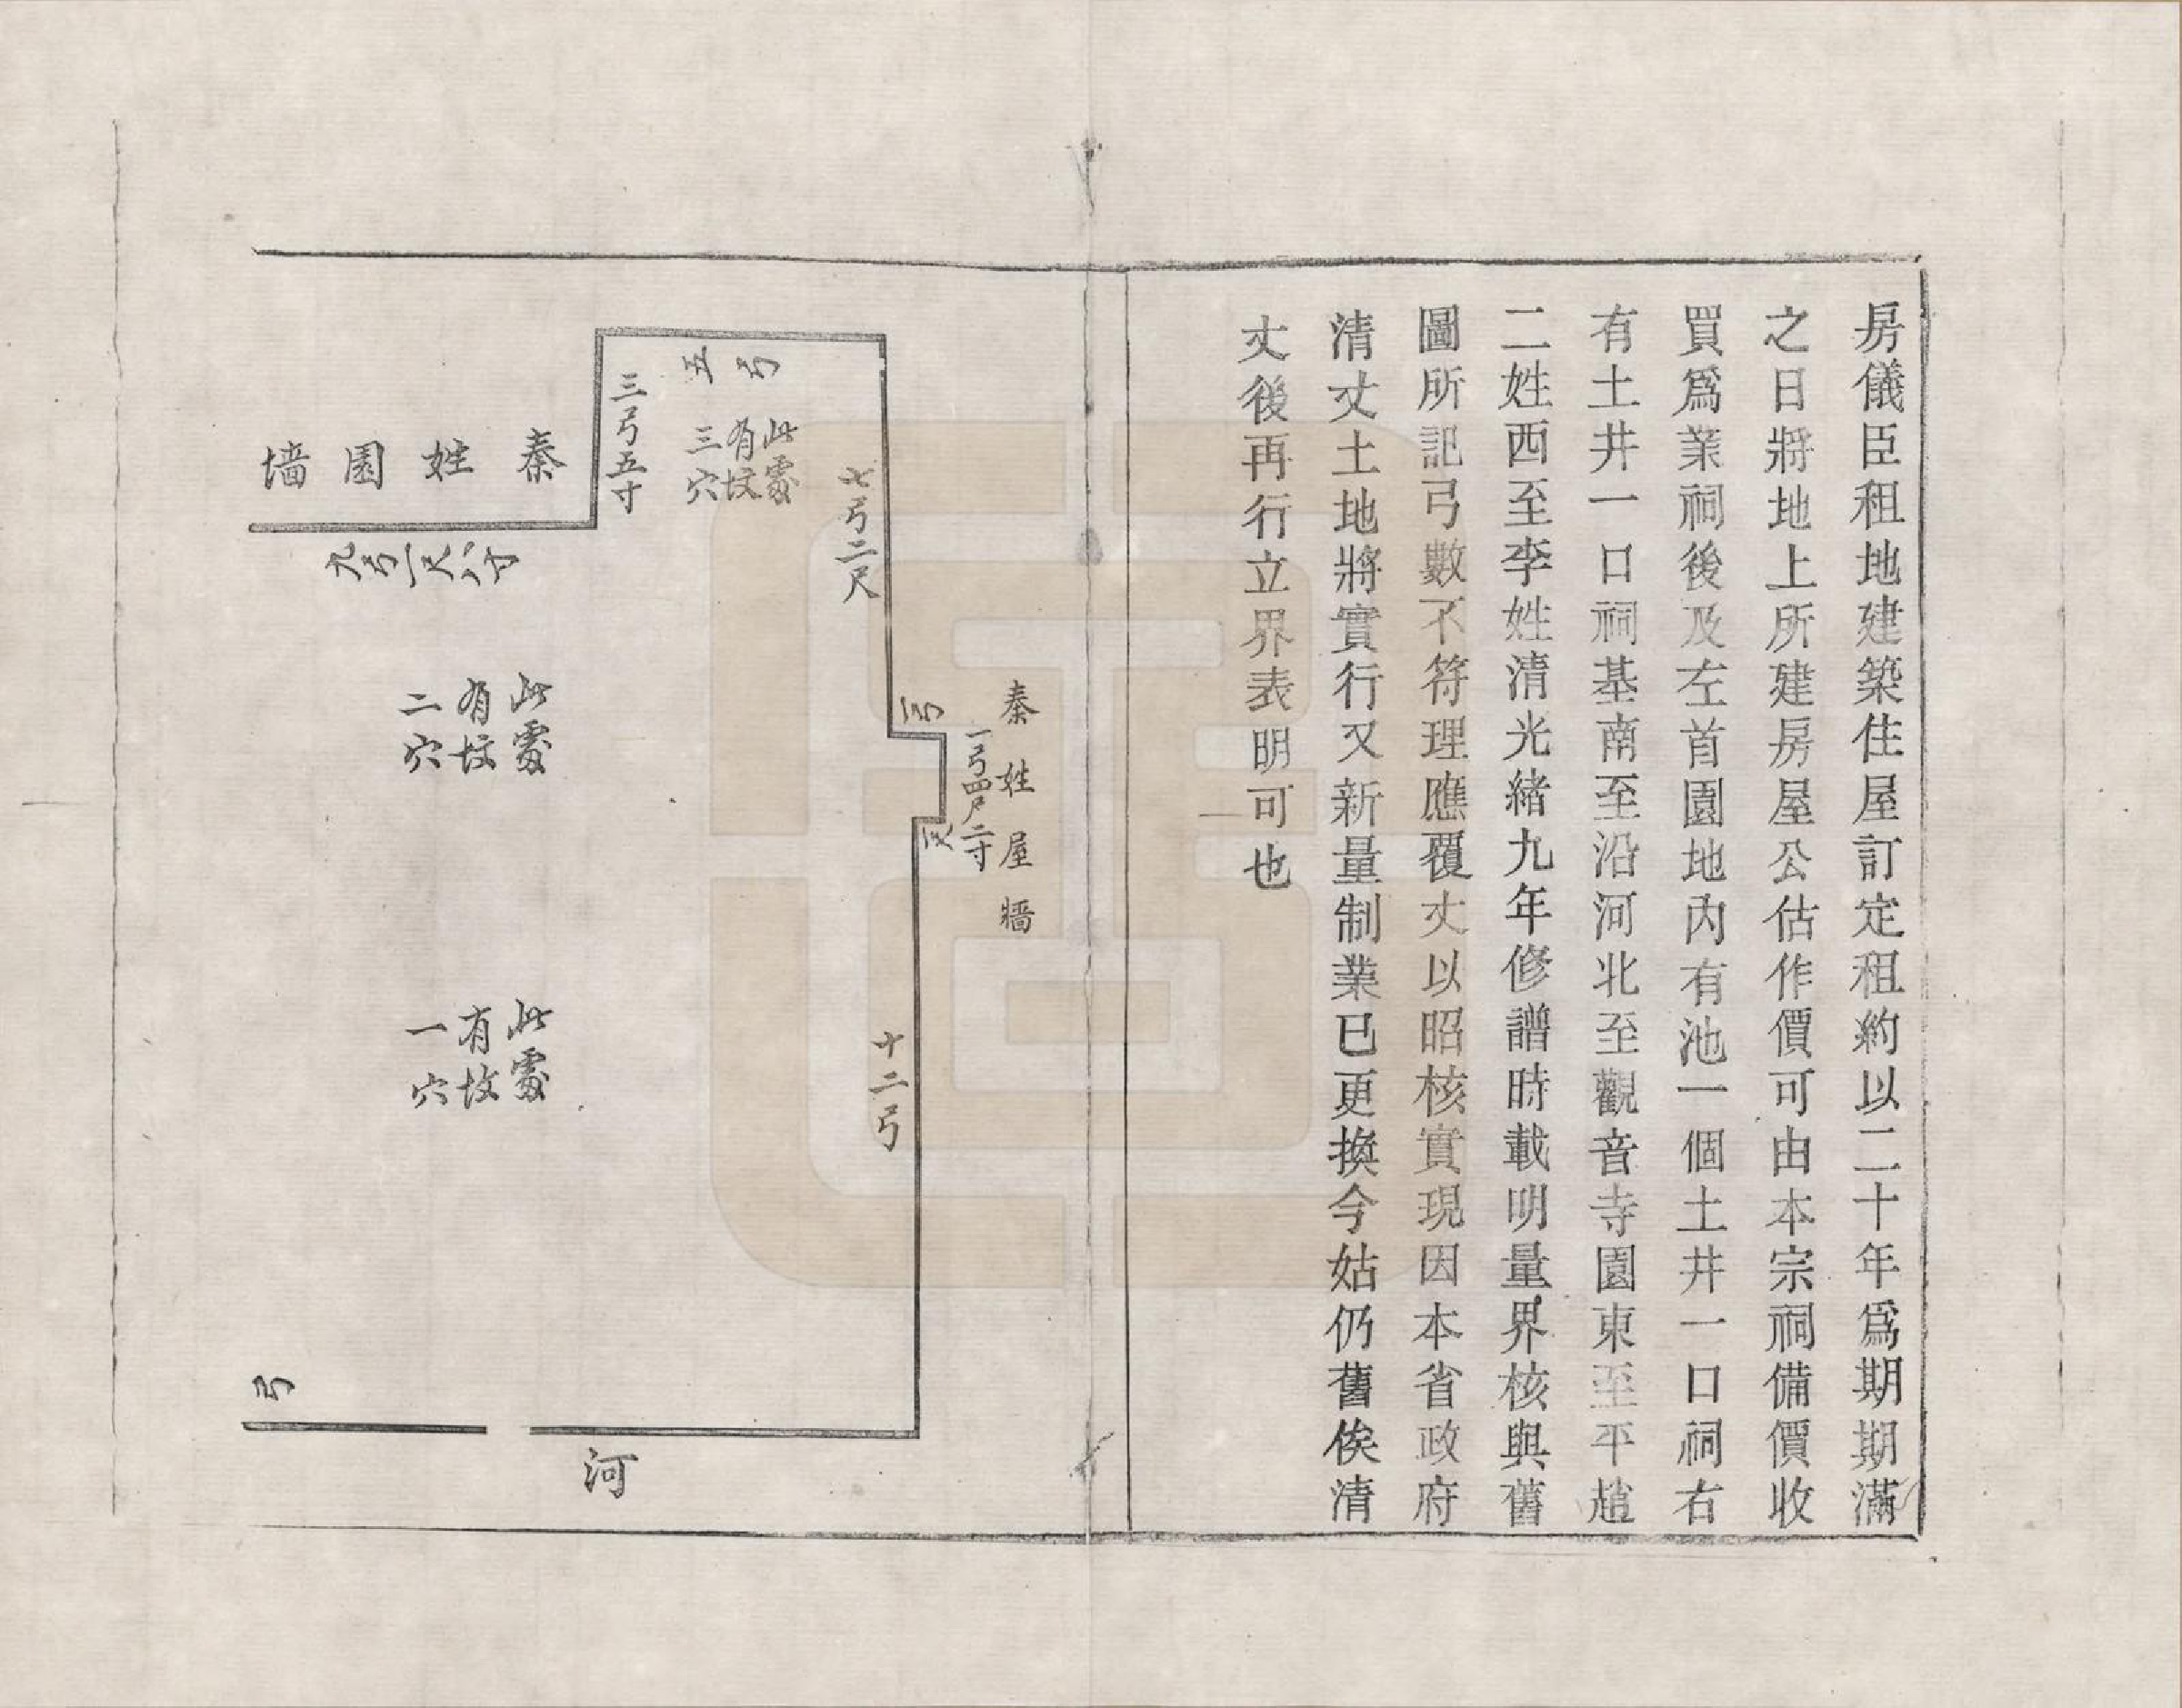 房儀臣租地建築住屋訂定租約以二十年爲期期滿
之日將地上所建房屋公估作價可由本宗祠備價收
買爲業祠後及左首園地內有池一個土井一口祠右
有土井一口祠基南至沿河北至觀音寺園東至平趙
二姓西至李姓清光緒九年修譜時載明量界核與舊
圖所記弓數不符理應覆丈以昭核實現因本省政府
清丈土地將實行又新量制業已更換今姑仍舊俟清
丈後再行立界表明可也
秦姓屋牆
一弓四尺二寸
一弓
一尺
七弓二尺
十二弓
五弓
此處
有坟
三穴
三弓五寸
秦姓園墻
九弓一尺八寸
此處
有坟
二穴
此處
有坟
一穴
河
弓